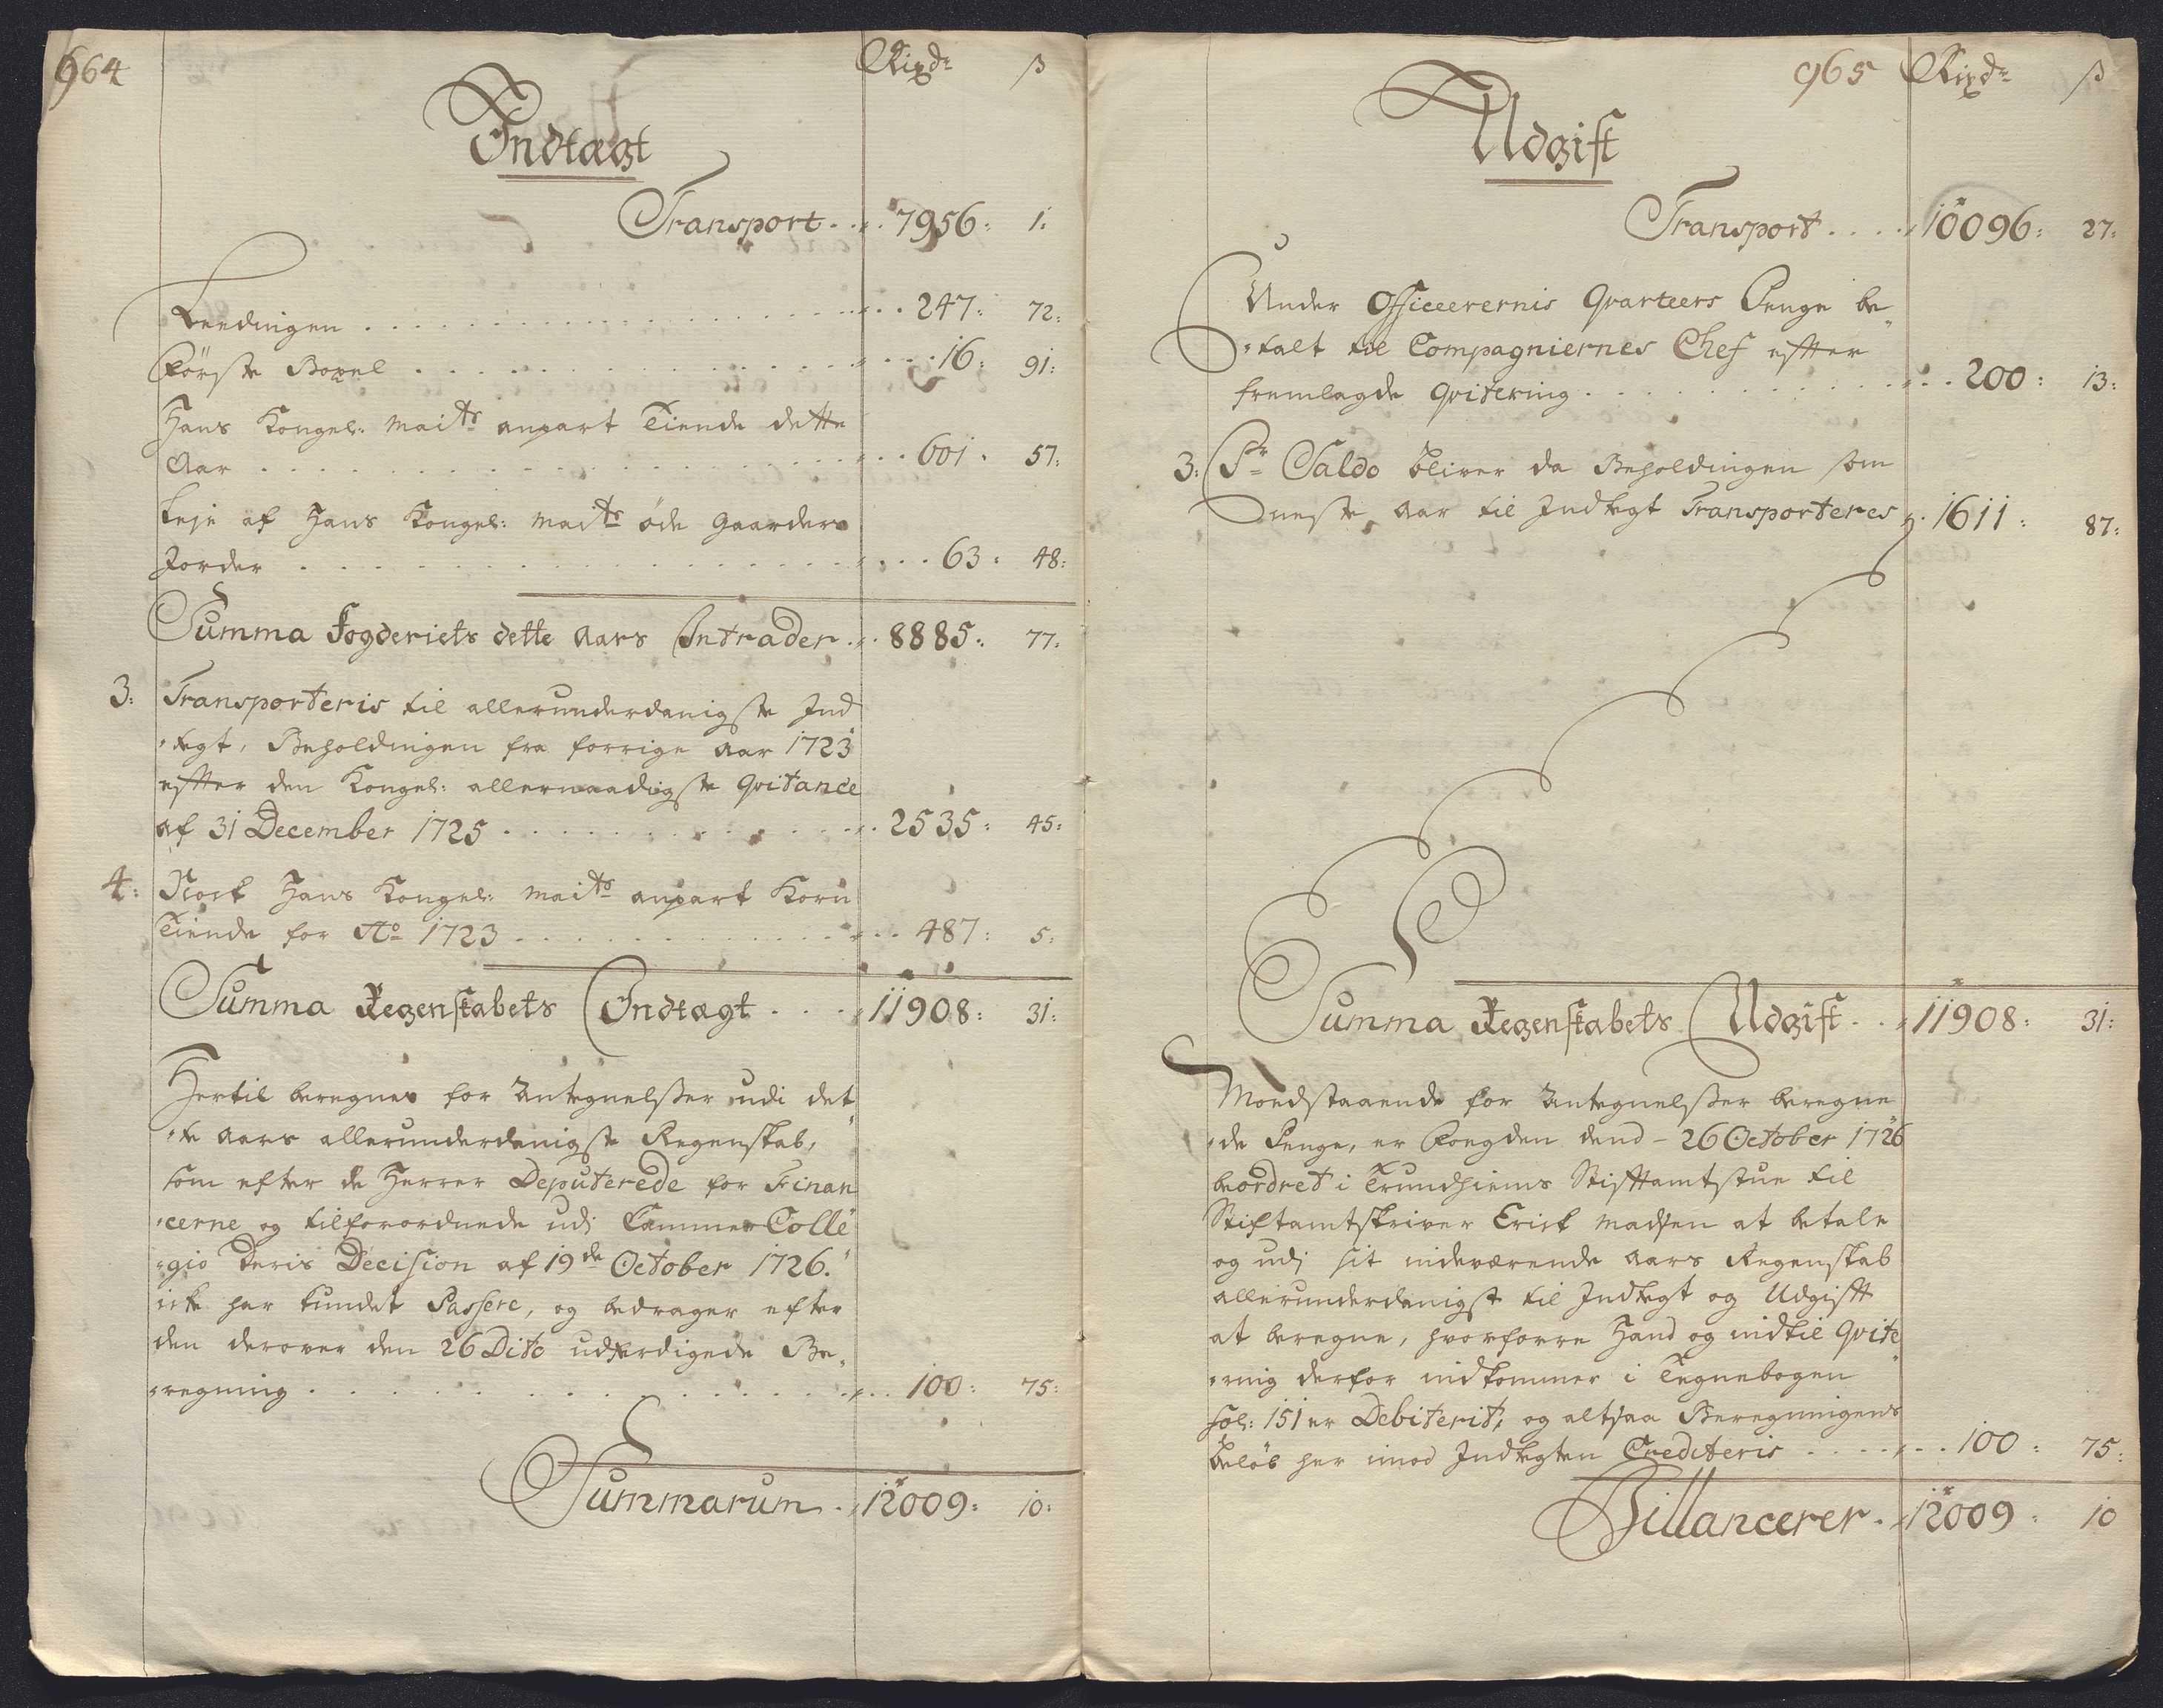 964
Rixdr ß
Indtægt
Transport . . . 7956: 1:
Leedingen . . . 247: 72:
Förste Boxel . . . 16: 91:
Hans Kongel: Maits anpart Tiende dette
Aar . . . 601. 57:
Leje af Hans Kongel: Maits öde Gaarders
Jorder . . . 63: 48:
Summa Fogderiets dette Aars Intrader . . 8885: 77:
3: Transporteris til allerunderdanigste Ind
tegt, Beholdingen fra forrige Aar 1723
effter den Kongel: allernaadigste Qvitance
af 31 December 1725 . . . 2535: 45:
4: Nock Hans Kongel: Maits anpart Korn
Tiende for Ao 1723 . . . 487: 5:
Summa Regenskabets Indtægt . . . 11908: 31:
Hertil beregnes for Antegnelsser udi det„
„te Aars allerunderdanigste Regenskab,
som efter de Herrer Deputerede for Finan
„cerne og tilforordnede udj Cammer Colle„
„gio Deris Decision af 19de October 1726.
icke har kundet Passere, og bedrager efter
den derover den 26 Dito udferdigede Be„
„regning . . . 100: 75:
Summarum . . 12009: 10:
965 Rixdr ß
Udgift
Transport . . . . 10096: 27:
Under Officeerernis Qvarteers Penge be„
„talt til Compagniernes Chef effter
fremlagde Qvitering . . . 200: 13:
3: Pr Saldo bliver da Beholdingen som
neste Aar til Indtegt Transporteres . 1611: 87:
Summa Regenskabets Udgift . . 11908: 31:
Moedstaaende for Antegnelsser beregne
„de Penge, er Foegden dend - 26 October 1726
beordret i Trundhiems Stifftamtstue til
Stiftamtskriver Erick Madsen at betale
og udj sit indeværende Aars Regenskab
allerunderdanigst til Indtegt og Udgifft
at beregne, hvorforre Hand og indtil Qvite
„ring derfor indkommer i Tegnebogen
fol: 151 er Debiterit, og altsaa Beregningens
Belöb her imod Indtegten Crediteris . . . 100: 75:
Billancerer . . 12009: 10